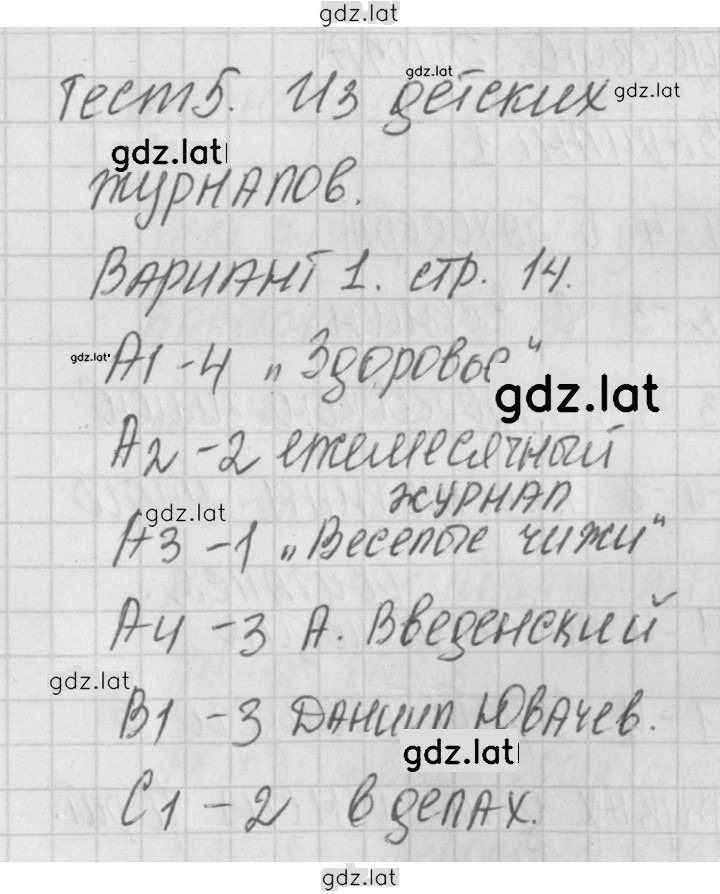 gdz.lat
Тест 5. Из детских
gdz.lat
gdz.lat
gdz.lat
журналов.
Вариант 1. стр. 14.
gdz.lat
А1 - 4 „Здоровье“
gdz.lat
А2 - 2 ежемесячный
журнал
gdz.lat
А3 - 1 „Веселые чижи“
А4 - 3 А. Введенский
gdz.lat
В1 - 3 Даниил Ювачев.
gdz.lat
С1 - 2 в делах.
gdz.lat